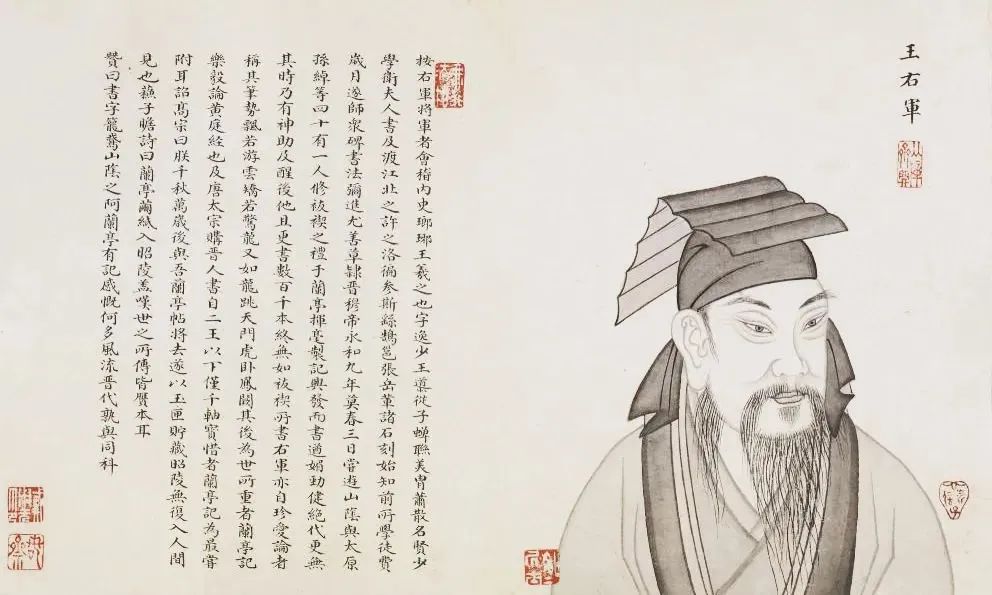 王右軍
按右軍將軍者會稽內史瑯琊王羲之也字逸少王導從子蟬聯美胄蕭散名賢少
學衛夫人書及渡江北之許之洛徧參斯繇鵠邕張岳華諸石刻始知前所學徒費
歲月遂師衆碑書法彌進尤善草隸晉穆帝永和九年莫春三日嘗遊山陰與太原
孫綽等四十有一人修祓禊之禮于蘭亭揮毫製記興發而書遒媚勁健絕代更無
其時乃有神助及醒後他且更書數百千本終無如祓禊所書右軍亦自珍愛論者
稱其筆勢飄若游雲矯若驚龍又如龍跳天門虎卧鳳闕其後為世所重者蘭亭記
樂毅論黃庭經也及唐太宗購晉人書自二王以下僅千軸寶惜者蘭亭記為最嘗
附耳詔高宗曰朕千秋萬歲後與吾蘭亭帖將去遂以玉匣貯藏昭陵無復入人間
見也蘇子瞻詩曰蘭亭繭紙入昭陵盖嘆世之所傳皆贋本耳
贊曰書字籠鵞山陰之阿蘭亭有記感慨何多風流晉代孰與同科